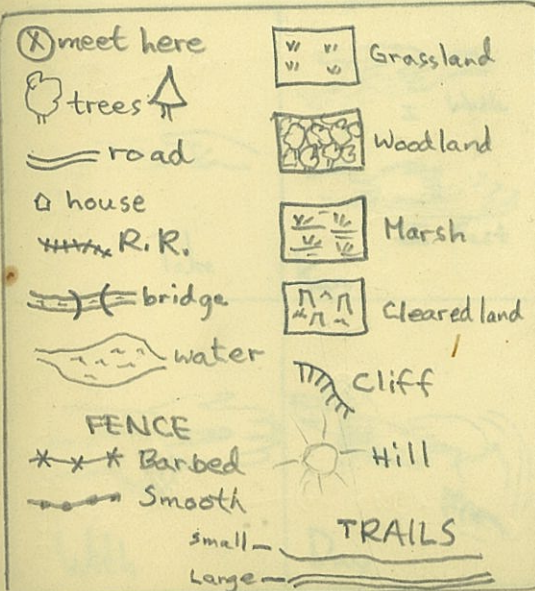 meet here
trees
road
house
R.R.
bridge
water
FENCE
Barbed
Smooth
Grassland
Woodland
Marsh
Cleared land
Cliff
Hill
TRAILS
Small
Large